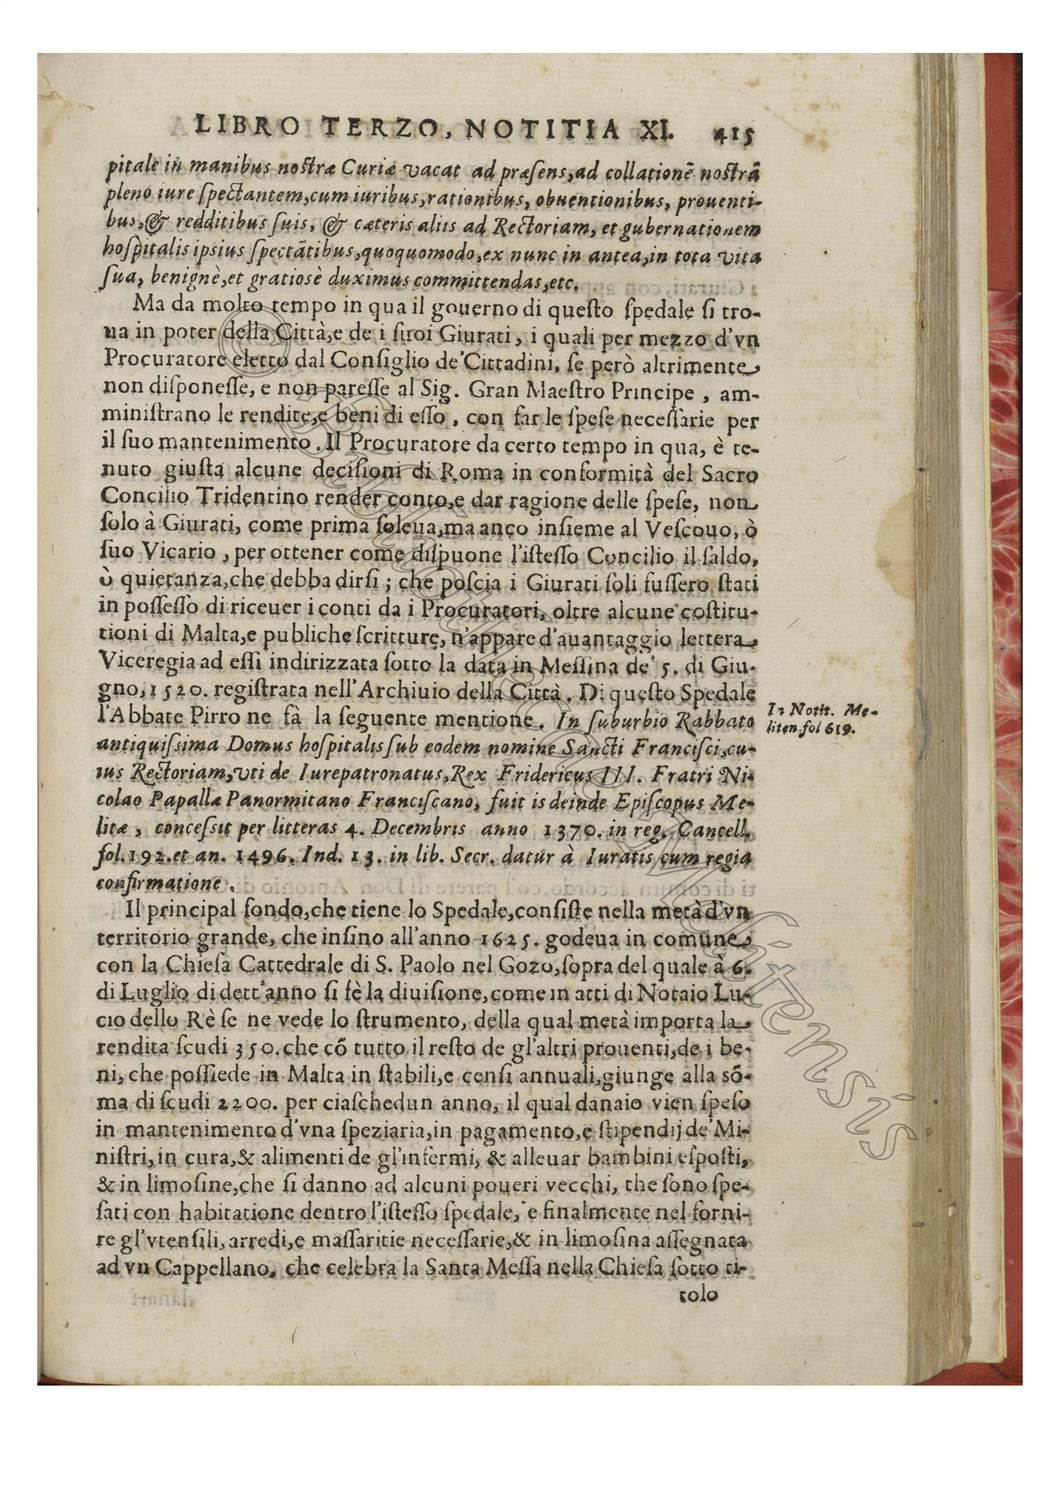 LIBRO TERZO, NOTITIA XI. 415
pitale in manibus nostræ Curiæ vacat ad præsens,ad collationē nostrā
pleno iure spectantem,cum iuribus,rationibus, obuentionibus, prouenti-
bus,& redditibus suis, & cæteris aliis ad Rectoriam, et gubernationem
hospitalis ipsius spectātibus,quoquomodo,ex nunc in antea,in tota vita
sua, benignè,et gratiosè duximus committendas,etc.
Ma da molto tempo in qua il gouerno di questo spedale si tro-
ua in poter della Città,e de i suoi Giurati, i quali per mezzo d'vn
Procuratore eletto dal Consiglio de'Cittadini, se però altrimente
non disponesse, e non paresse al Sig. Gran Maestro Principe , am-
ministrano le rendite,e beni di esso , con far le spese necessarie per
il suo mantenimento . Il Procuratore da certo tempo in qua, è te-
nuto giusta alcune decisioni di Roma in conformità del Sacro
Concilio Tridentino render conto,e dar ragione delle spese, non
solo à Giurati, come prima soleua,ma anco insieme al Vescouo, ò
suo Vicario , per ottener come dispuone l'istesso Concilio il saldo,
ò quietanza,che debba dirsi ; che poscia i Giurati soli fussero stati
in possesso di riceuer i conti da i Procuratori, oltre alcune costitu-
tioni di Malta,e publiche scritture, n'appare d'auantaggio lettera
Viceregia ad essi indirizzata sotto la data in Messina de' 5. di Giu-
gno, 1520. registrata nell'Archiuio della Città . Di questo Spedale
l'Abbate Pirro ne fà la seguente mentione . In suburbio Rabbato
In Notit. Me-
liten.fol 619.
antiquissima Domus hospitalis sub eodem nomine Sancti Francisci,cu-
ius Rectoriam,vti de Iurepatronatus,Rex Fridericus III. Fratri Ni-
colao Papallæ Panormitano Franciscano, fuit is deinde Episcopus Me-
litæ , concessit per litteras 4. Decembris anno 1370. in reg. Cancell.
fol.192.et an. 1496. Ind. 13. in lib. Secr. datur à Iuratis cum regia
confirmatione .
Il principal fondo,che tiene lo Spedale,consiste nella metà d'vn
territorio grande, che insino all'anno 1625. godeua in comune
con la Chiesa Cattedrale di S. Paolo nel Gozo,sopra del quale à 6.
di Luglio di dett'anno si fè la diuisione,come in atti di Notaio Lu-
cio dello Rè se ne vede lo strumento, della qual metà importa la
rendita scudi 350.che cō tutto il resto de gl'altri prouenti,de i be-
ni, che possiede in Malta in stabili,e censi annuali,giunge alla sō-
ma di scudi 2200. per ciaschedun anno, il qual danaio vien speso
in mantenimento d'vna speziaria,in pagamento,e stipendij de'Mi-
nistri,in cura,& alimenti de gl'infermi, & alleuar bambini esposti,
& in limosine,che si danno ad alcuni poueri vecchi, che sono spe-
sati con habitatione dentro l'istesso spedale, e finalmente nel forni-
re gl'vtensili, arredi,e massaritie necessarie,& in limosina assegnata
ad vn Cappellano, che celebra la Santa Messa nella Chiesa sotto ti-
tolo